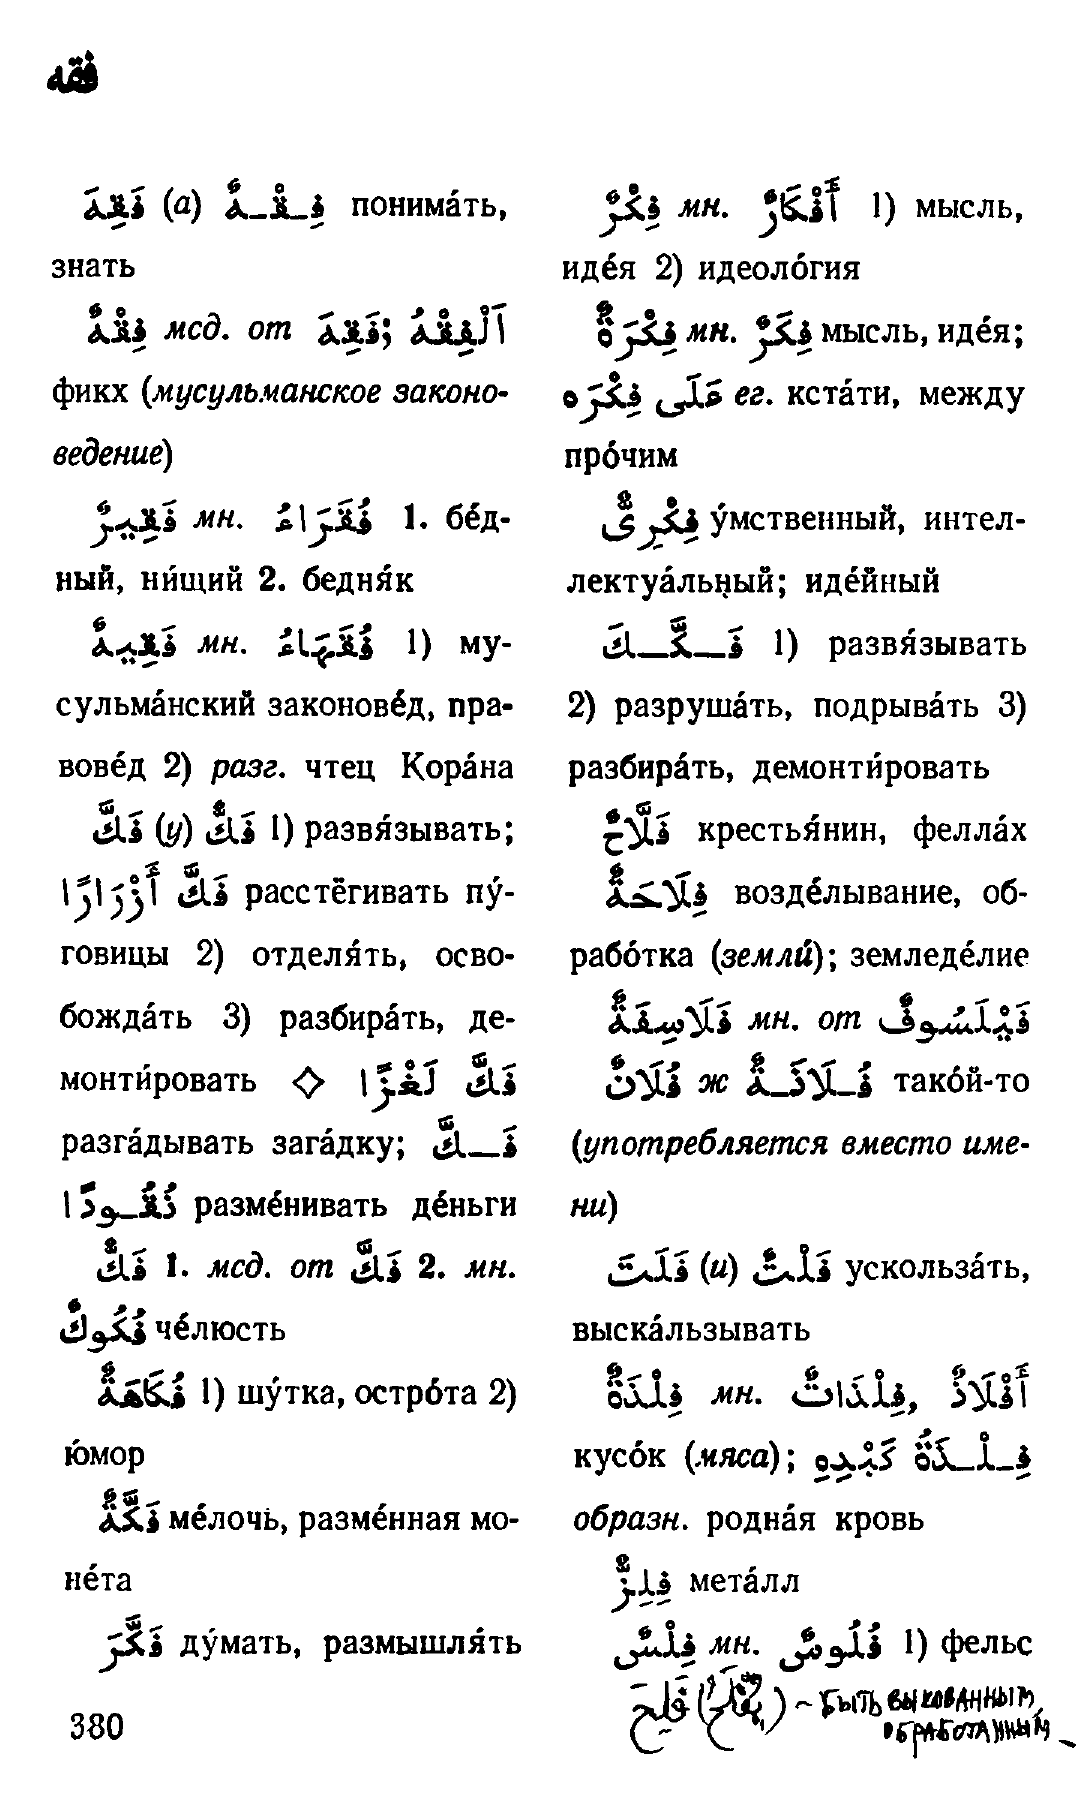 فقه
فَقِهَ (a) فِـقْـهٌ понима́ть,
знать
فِقْهٌ мсд. от فَقِهَ; اَلْفِقْهُ
фикх (мусульманское законо-
ведение)
فَقِيرٌ мн. فُقَرَاءُ 1. бе́д-
ный, ни́щий 2. бедня́к
فَقِيهٌ мн. فُقَهَاءُ 1) му-
сульма́нский законове́д, пра-
вове́д 2) разг. чтец Кора́на
فَكَّ (y) فَكٌّ 1) развя́зывать;
فَكَّ أَزْرَارًا расстёгивать пу́-
говицы 2) отделя́ть, осво-
божда́ть 3) разбира́ть, де-
монти́ровать ◇ فَكَّ لُغْزًا
разга́дывать зага́дку; فَـكَّ
نُقُـودًا разме́нивать де́ньги
فَكٌّ 1. мсд. от فَكَّ 2. мн.
فُكُوكٌ че́люсть
فُكَاهَةٌ 1) шу́тка, остро́та 2)
ю́мор
فَكَّةٌ ме́лочь, разме́нная мо-
не́та
فَكَّرَ ду́мать, размышля́ть
380
فِكْرٌ мн. أَفْكَارٌ 1) мысль,
иде́я 2) идеоло́гия
فِكْرَةٌ мн. فِكَرٌ мысль, иде́я;
عَلَى فِكْرَه ег. кста́ти, между
про́чим
فِكْرِىٌّ у́мственный, интел-
лектуа́льный; иде́йный
فَـكَّـكَ 1) развя́зывать
2) разруша́ть, подрыва́ть 3)
разбира́ть, демонти́ровать
فَلَّاحٌ крестья́нин, фелла́х
فِلَاحَةٌ возде́лывание, об-
рабо́тка (земли́); земледе́лие
فَلَاسِفَةٌ мн. от فَيْلَسُوفٌ
فُلَانٌ ж فُـلَانَـةٌ тако́й-то
(употребляется вместо име-
ни)
فَلَتَ (и) فَلْتٌ ускольза́ть,
выска́льзывать
فِلْذَةٌ мн. فِلْذَاتٌ, أَفْلَاذٌ
кусо́к (мяса); فِـلْـذَةُ كَبِدِهِ
образн. родна́я кровь
فِلِزٌّ мета́лл
فِلْسٌ мн. فُلُوسٌ 1) фельс
فَلِحَ (يَفْلَحُ) ~ быть выкованным,
обработанным